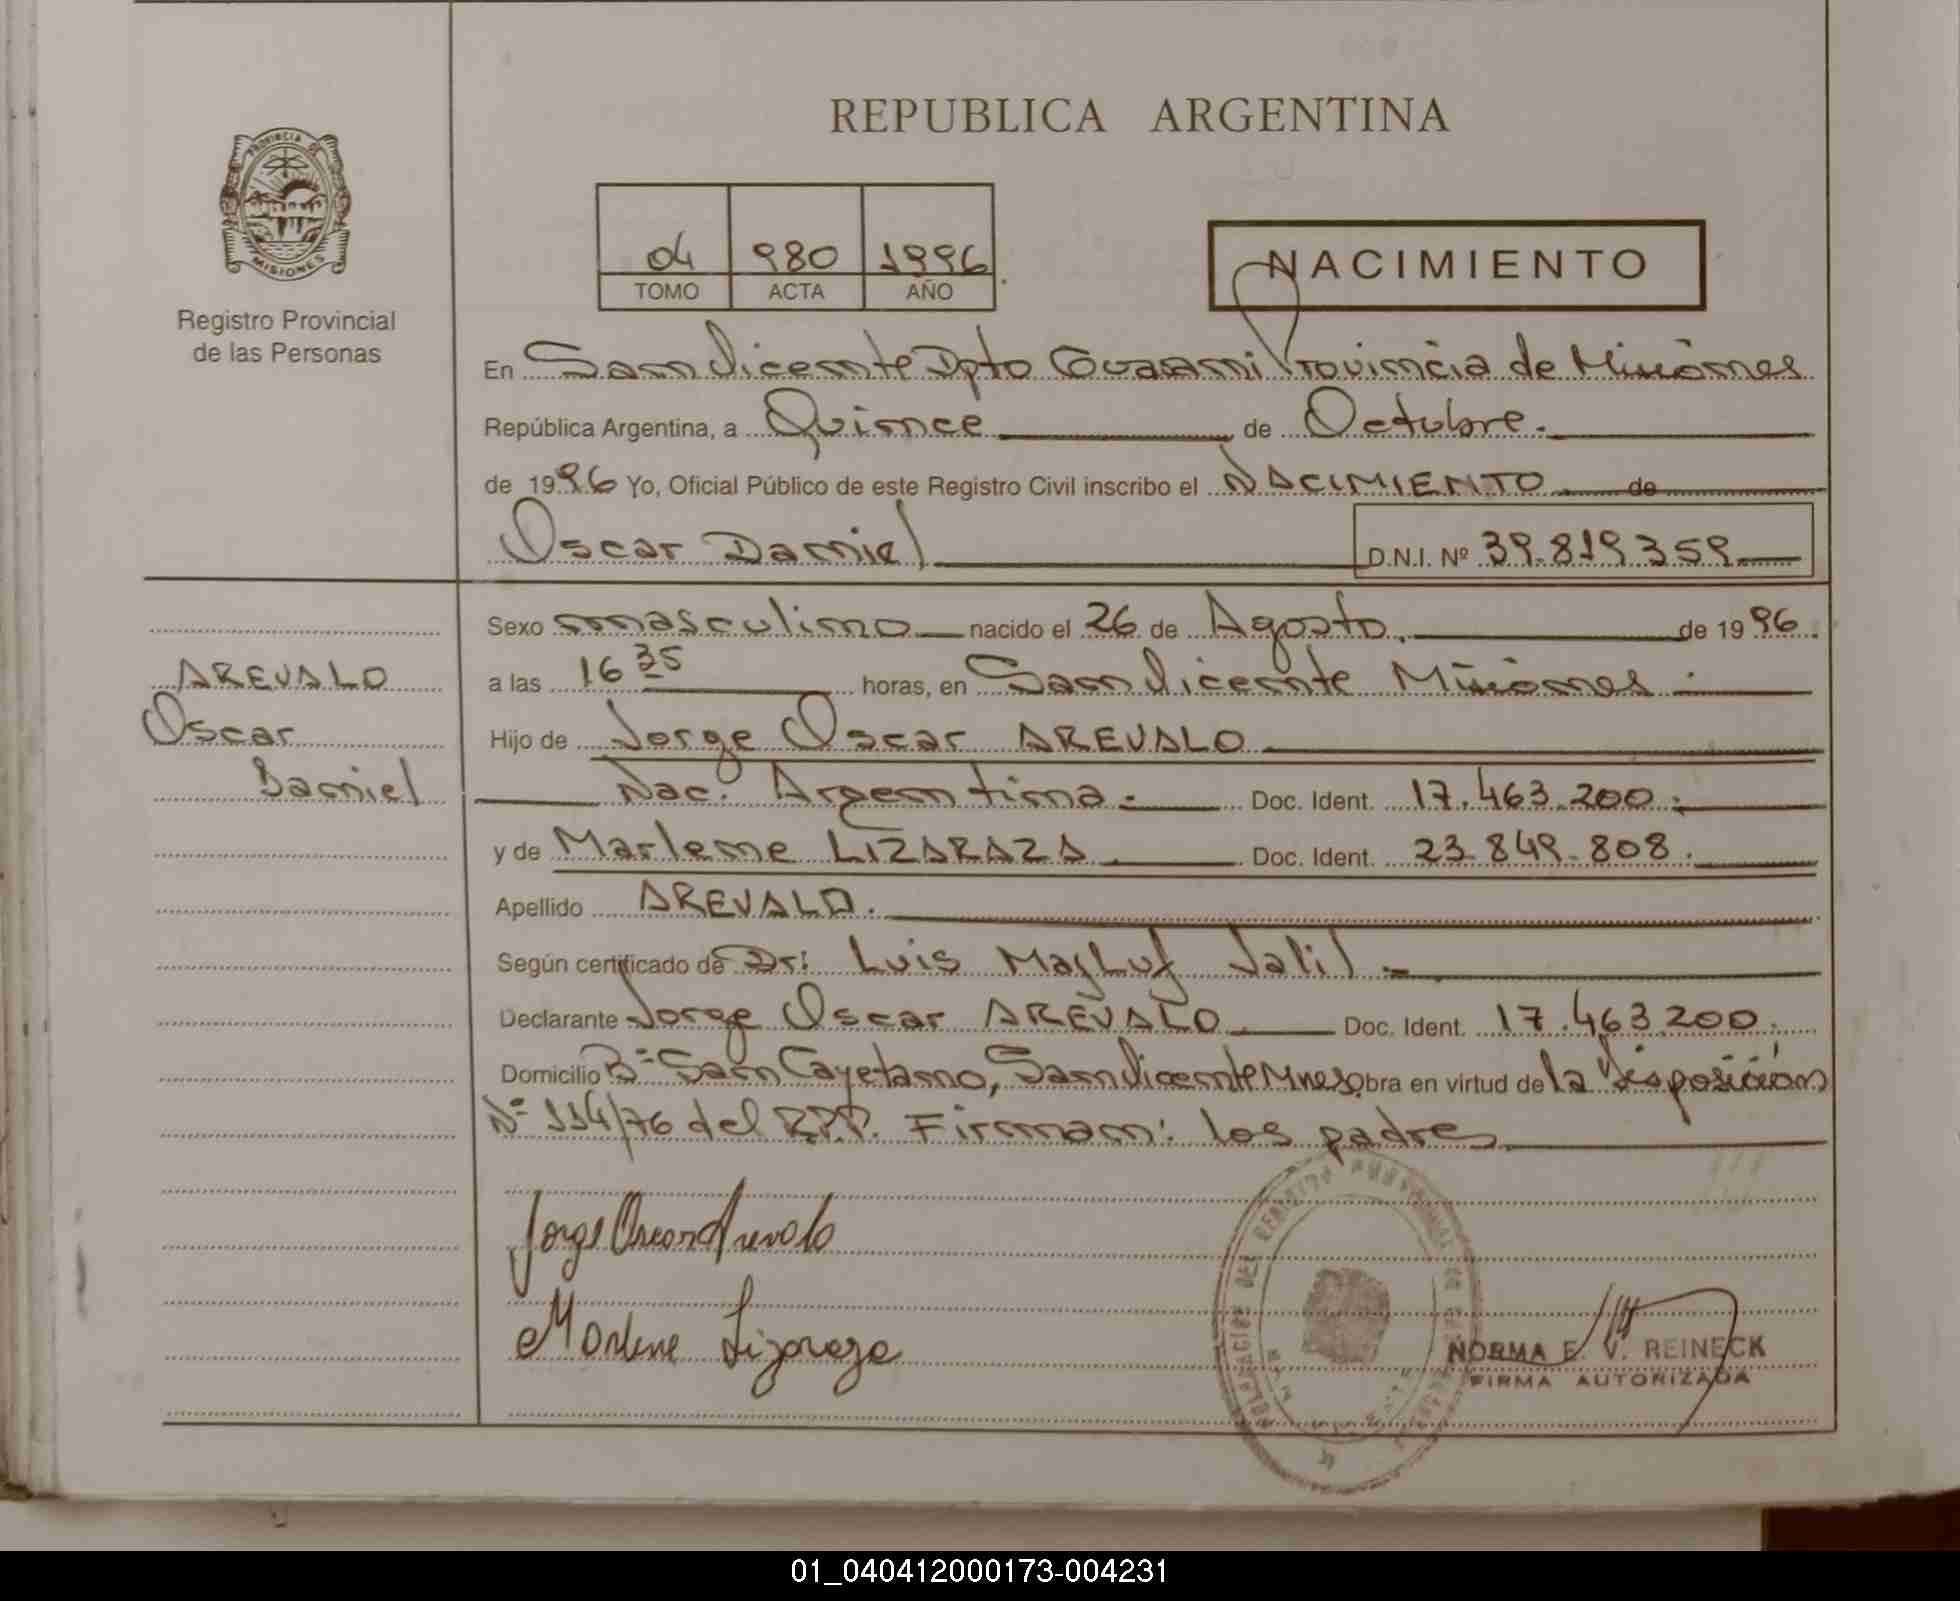 REPUBLICA ARGENTINA
PROVINCIA DE
MISIONES
Registro Provincial
de las Personas
04 980 1996
TOMO ACTA AÑO
NACIMIENTO
En San Vicente Dpto Guarani Provincia de Misiones
República Argentina, a Quince de Octubre.
de 1996 Yo, Oficial Público de este Registro Civil inscribo el NACIMIENTO de
Oscar Daniel D.N.I. Nº 39.819.359
Sexo masculino nacido el 26 de Agosto. de 1996.
AREVALO
Oscar
Daniel
a las 16 35 horas, en San Vicente Misiones.
Hijo de Jorge Oscar AREVALO
Nac. Argentina. Doc. Ident. 17.463.200.
y de Marlene LIZARAZA Doc. Ident. 23.849.808.
Apellido AREVALO.
Según certificado de Dr: Luis Mayluf Jalil.
Declarante Jorge Oscar AREVALO Doc. Ident. 17.463.200.
Domicilio Bº San Cayetano, San Vicente Mnes. obra en virtud de la Disposición
Nº 114/76 del R.P.P. Firman: los padres
Jorge Oscar Arevalo
Marlene Lizaraza
NORMA E. V. REINECK
FIRMA AUTORIZADA
01_040412000173-004231